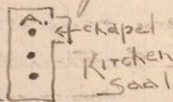 A.
chapel
Kirchen
Saal